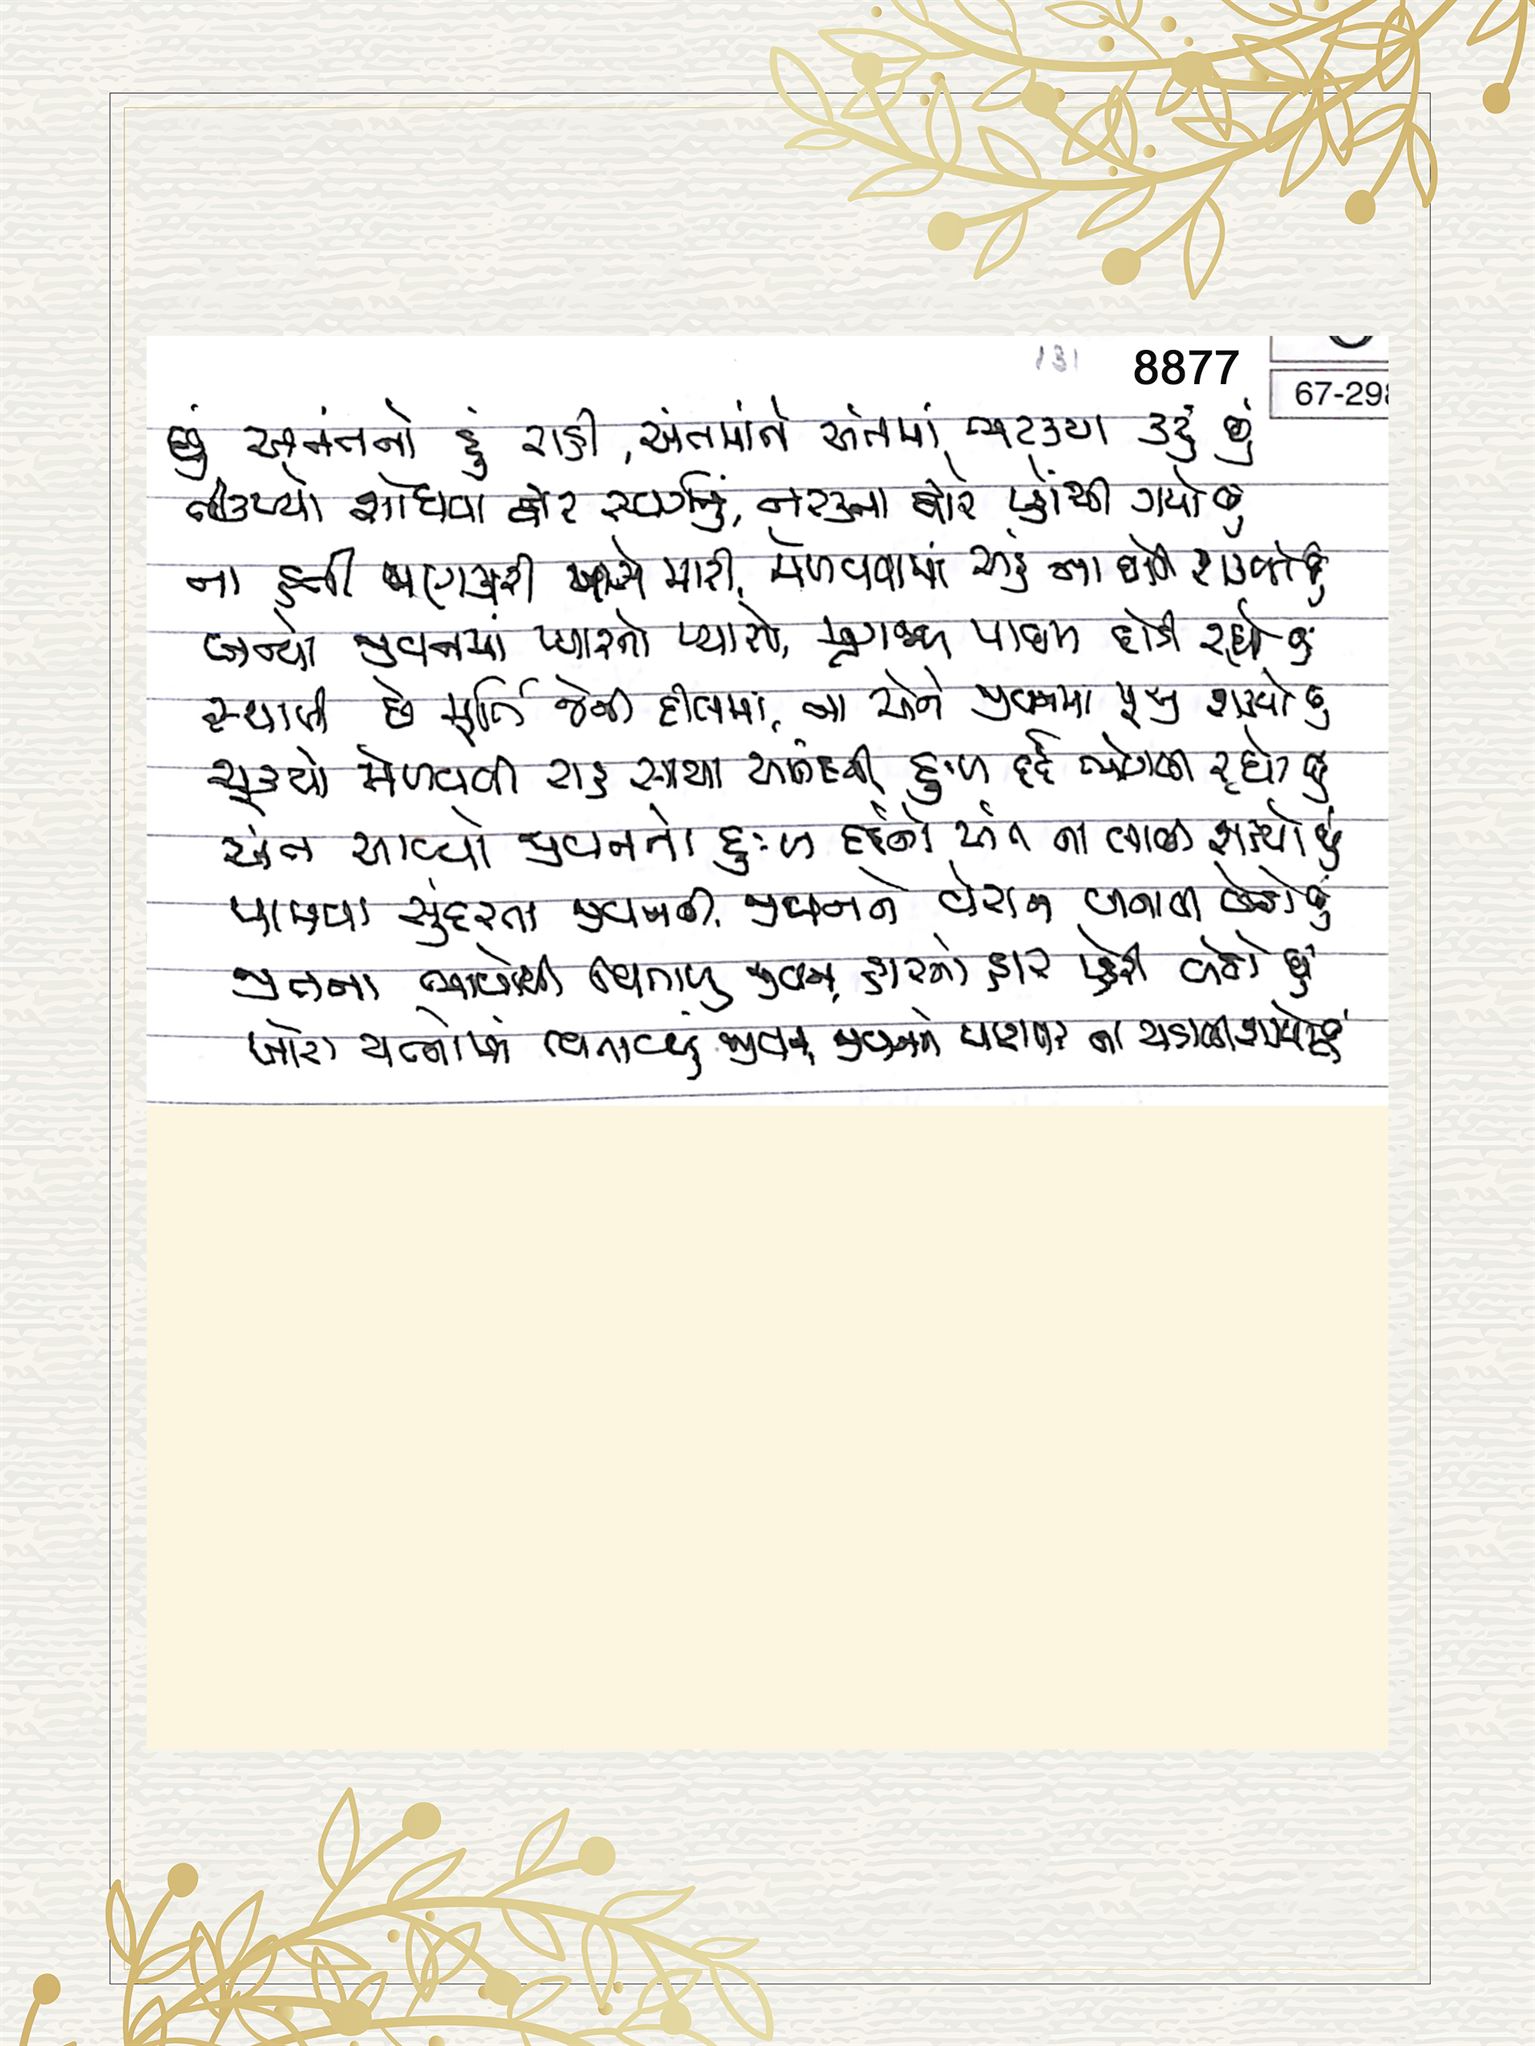 131
8877
67-298
છું અનંતનો હું રાહી, અંતમાંને અંતમાં ભટક્યા કરું છું
નીકળ્યો શોધવા દ્વાર સ્વર્ગનું, નરકના દ્વારે પ્હોંચી ગયો છું
ના હતી ધારી, મેળવવામાં રાહ ના શક્યો છું
બન્યો જીવનમાં પ્યારનો પ્યાસો, મૃગજળ પાછળ દોડી રહ્યો છું
સ્થાપી છે મૂર્તિ જેની દીલમાં, ના એને જીવનમાં પૂજી શક્યો છું
ચૂક્યો મેળવવી રાહ સાચા આનંદની, દુઃખ દર્દ ભોગવી રહ્યો છું
અંત આવ્યો જીવનનો દુઃખ દર્દનો અંત ના લાવી શક્યો છું
પામવા સુંદરતા જીવનની, જીવનને વેરાન બનાવી બેઠો છું
જીતના ખ્વાબોથી વિતાવ્યું જીવન, હારનો હાર પહેરી બેઠો છું
કોરા યત્નોમાં વિતાવ્યું જીવન, જીવનને ના ચડાવી શક્યો છું